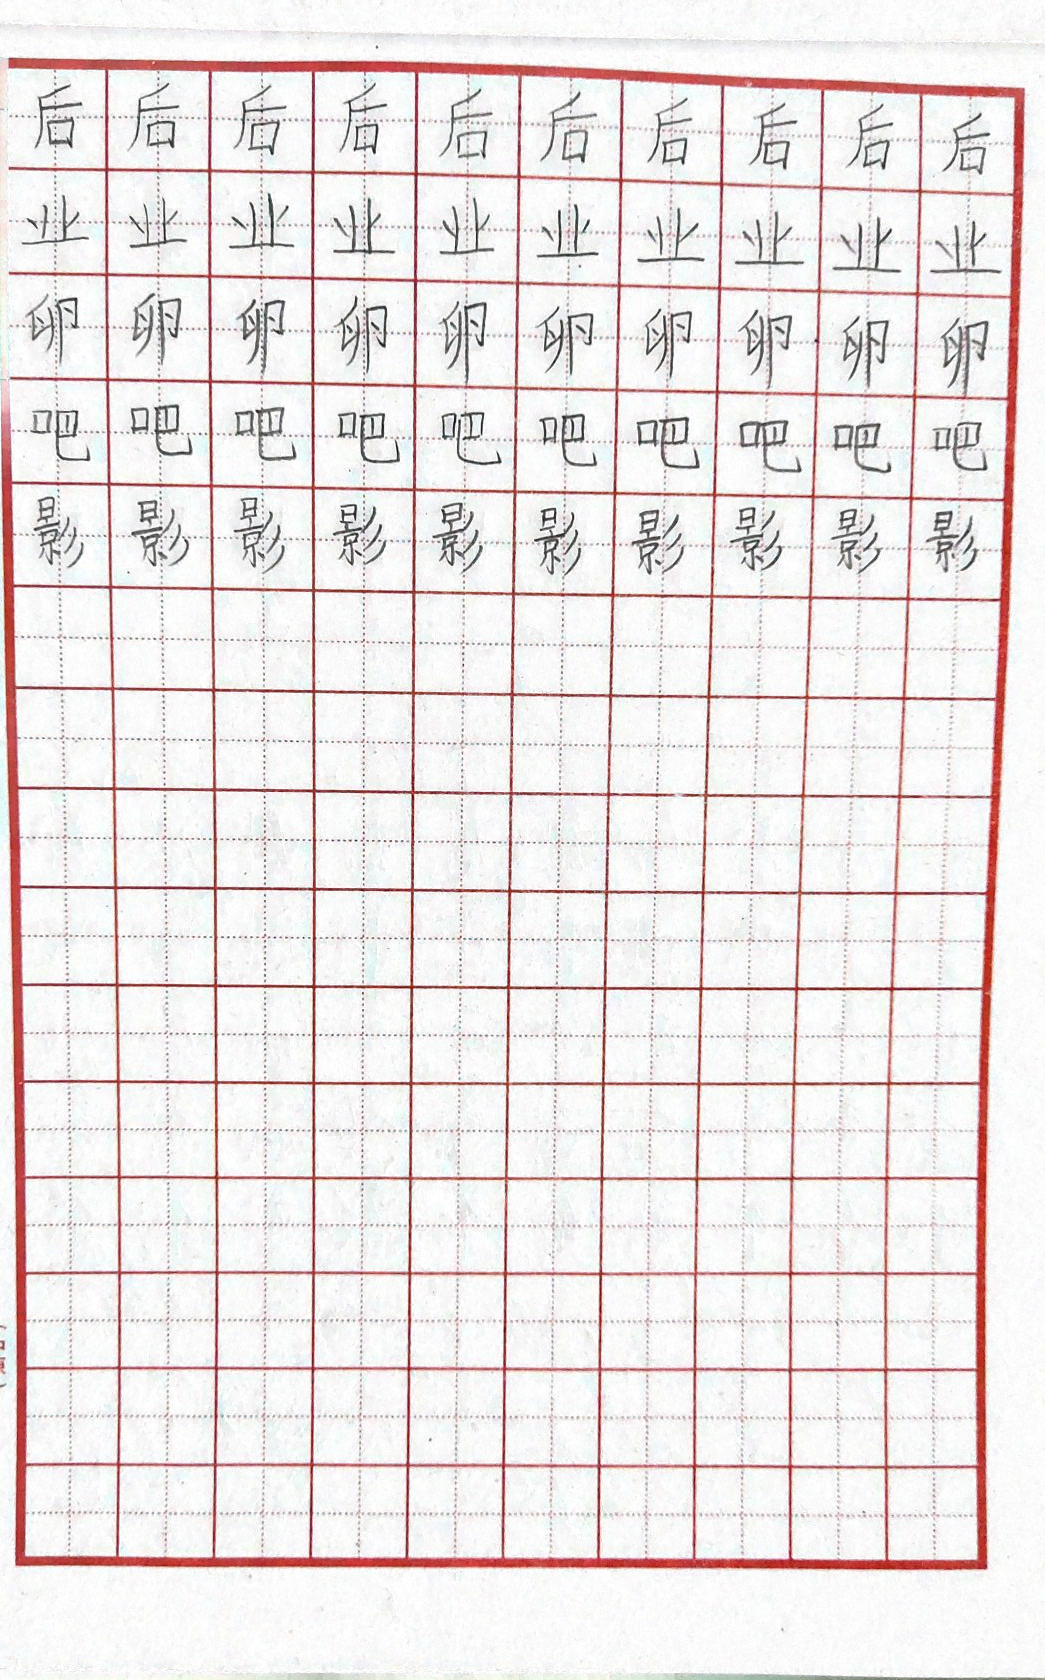 后后后后后后后后后后
业业业业业业业业业业
卵卵卵卵卵卵卵卵卵卵
吧吧吧吧吧吧吧吧吧吧
影影影影影影影影影影